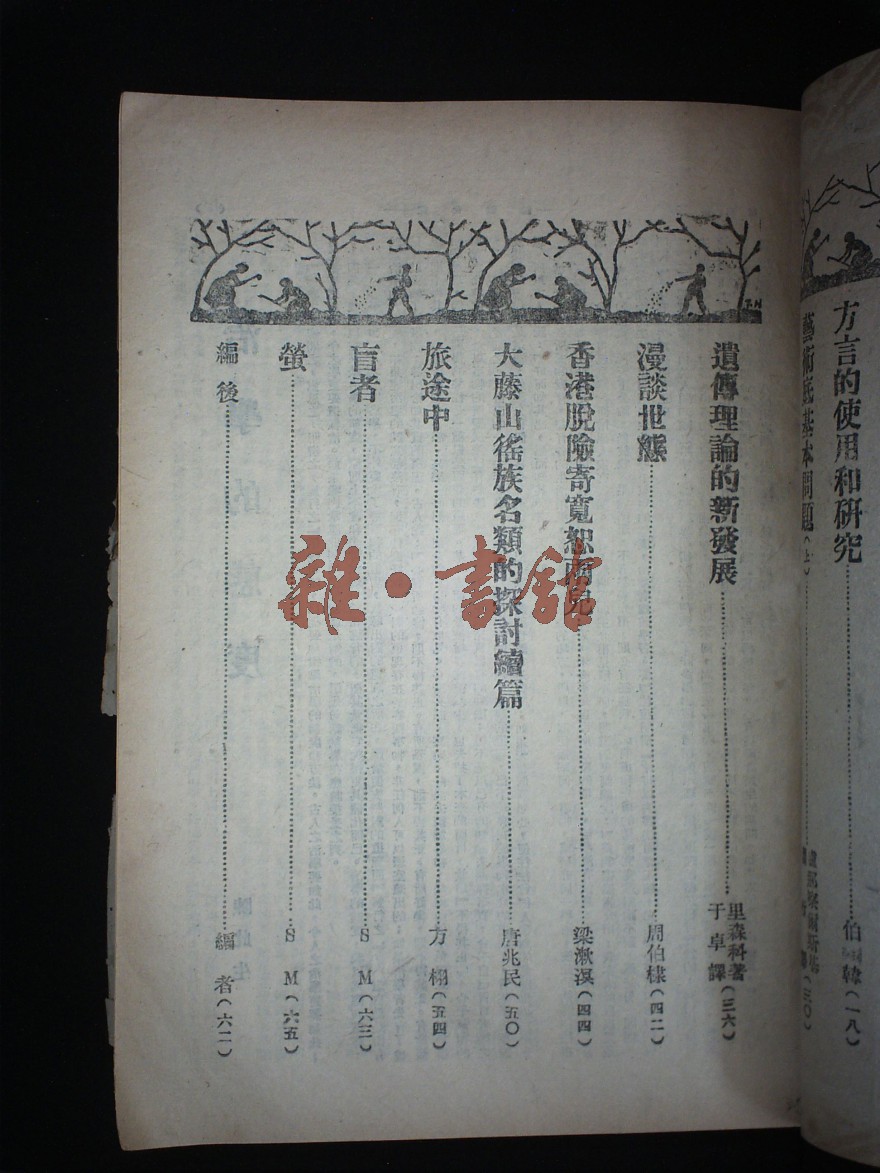 方言的使用和研究 伯韓(一八)
藝術底基本問題(上) (三〇)
遺傳理論的新發展 里森科著 于卓譯(三六)
漫談世態 周伯棣(四二)
香港脫險寄寬恕兩兒 梁漱溟(四四)
大藤山徭族名類的探討續篇 唐兆民(五〇)
旅途中 方栩(五四)
盲者 S M(六三)
螢 S M(六五)
編後 編者(六二)
T.H
雜·書館